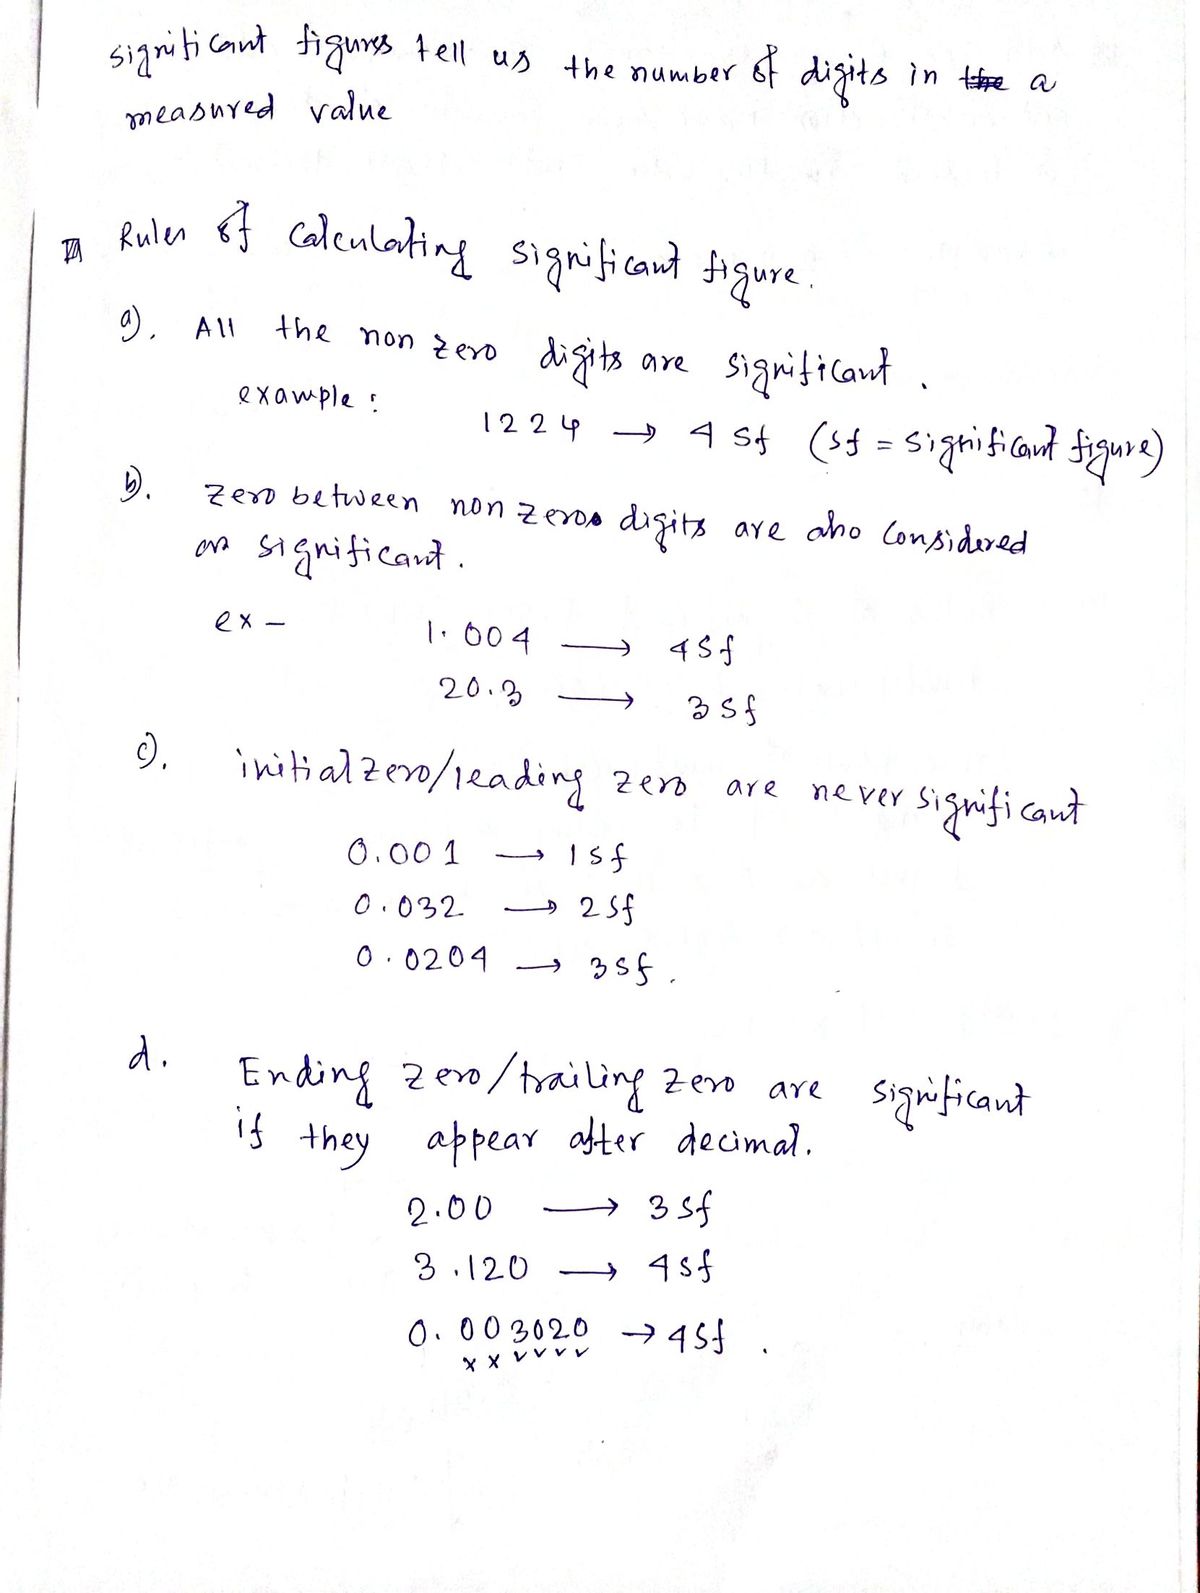 significant figures tell us the number of digits in the a
measured value
Rules of Calculating significant figure.
a). All the non zero digits are significant.
example:
1224 → 4 sf (sf = significant figure)
b). Zero between non zero digits are also considered
as significant.
ex - 1.004 → 4sf
20.3 → 3sf
c). initial zero/leading zero are never significant
0.001 → 1sf
0.032 → 2sf
0.0204 → 3sf.
d. Ending zero/trailing zero are significant
if they appear after decimal.
2.00 → 3sf
3.120 → 4sf
0.003020 → 4sf.
x x ✓ ✓ ✓ ✓